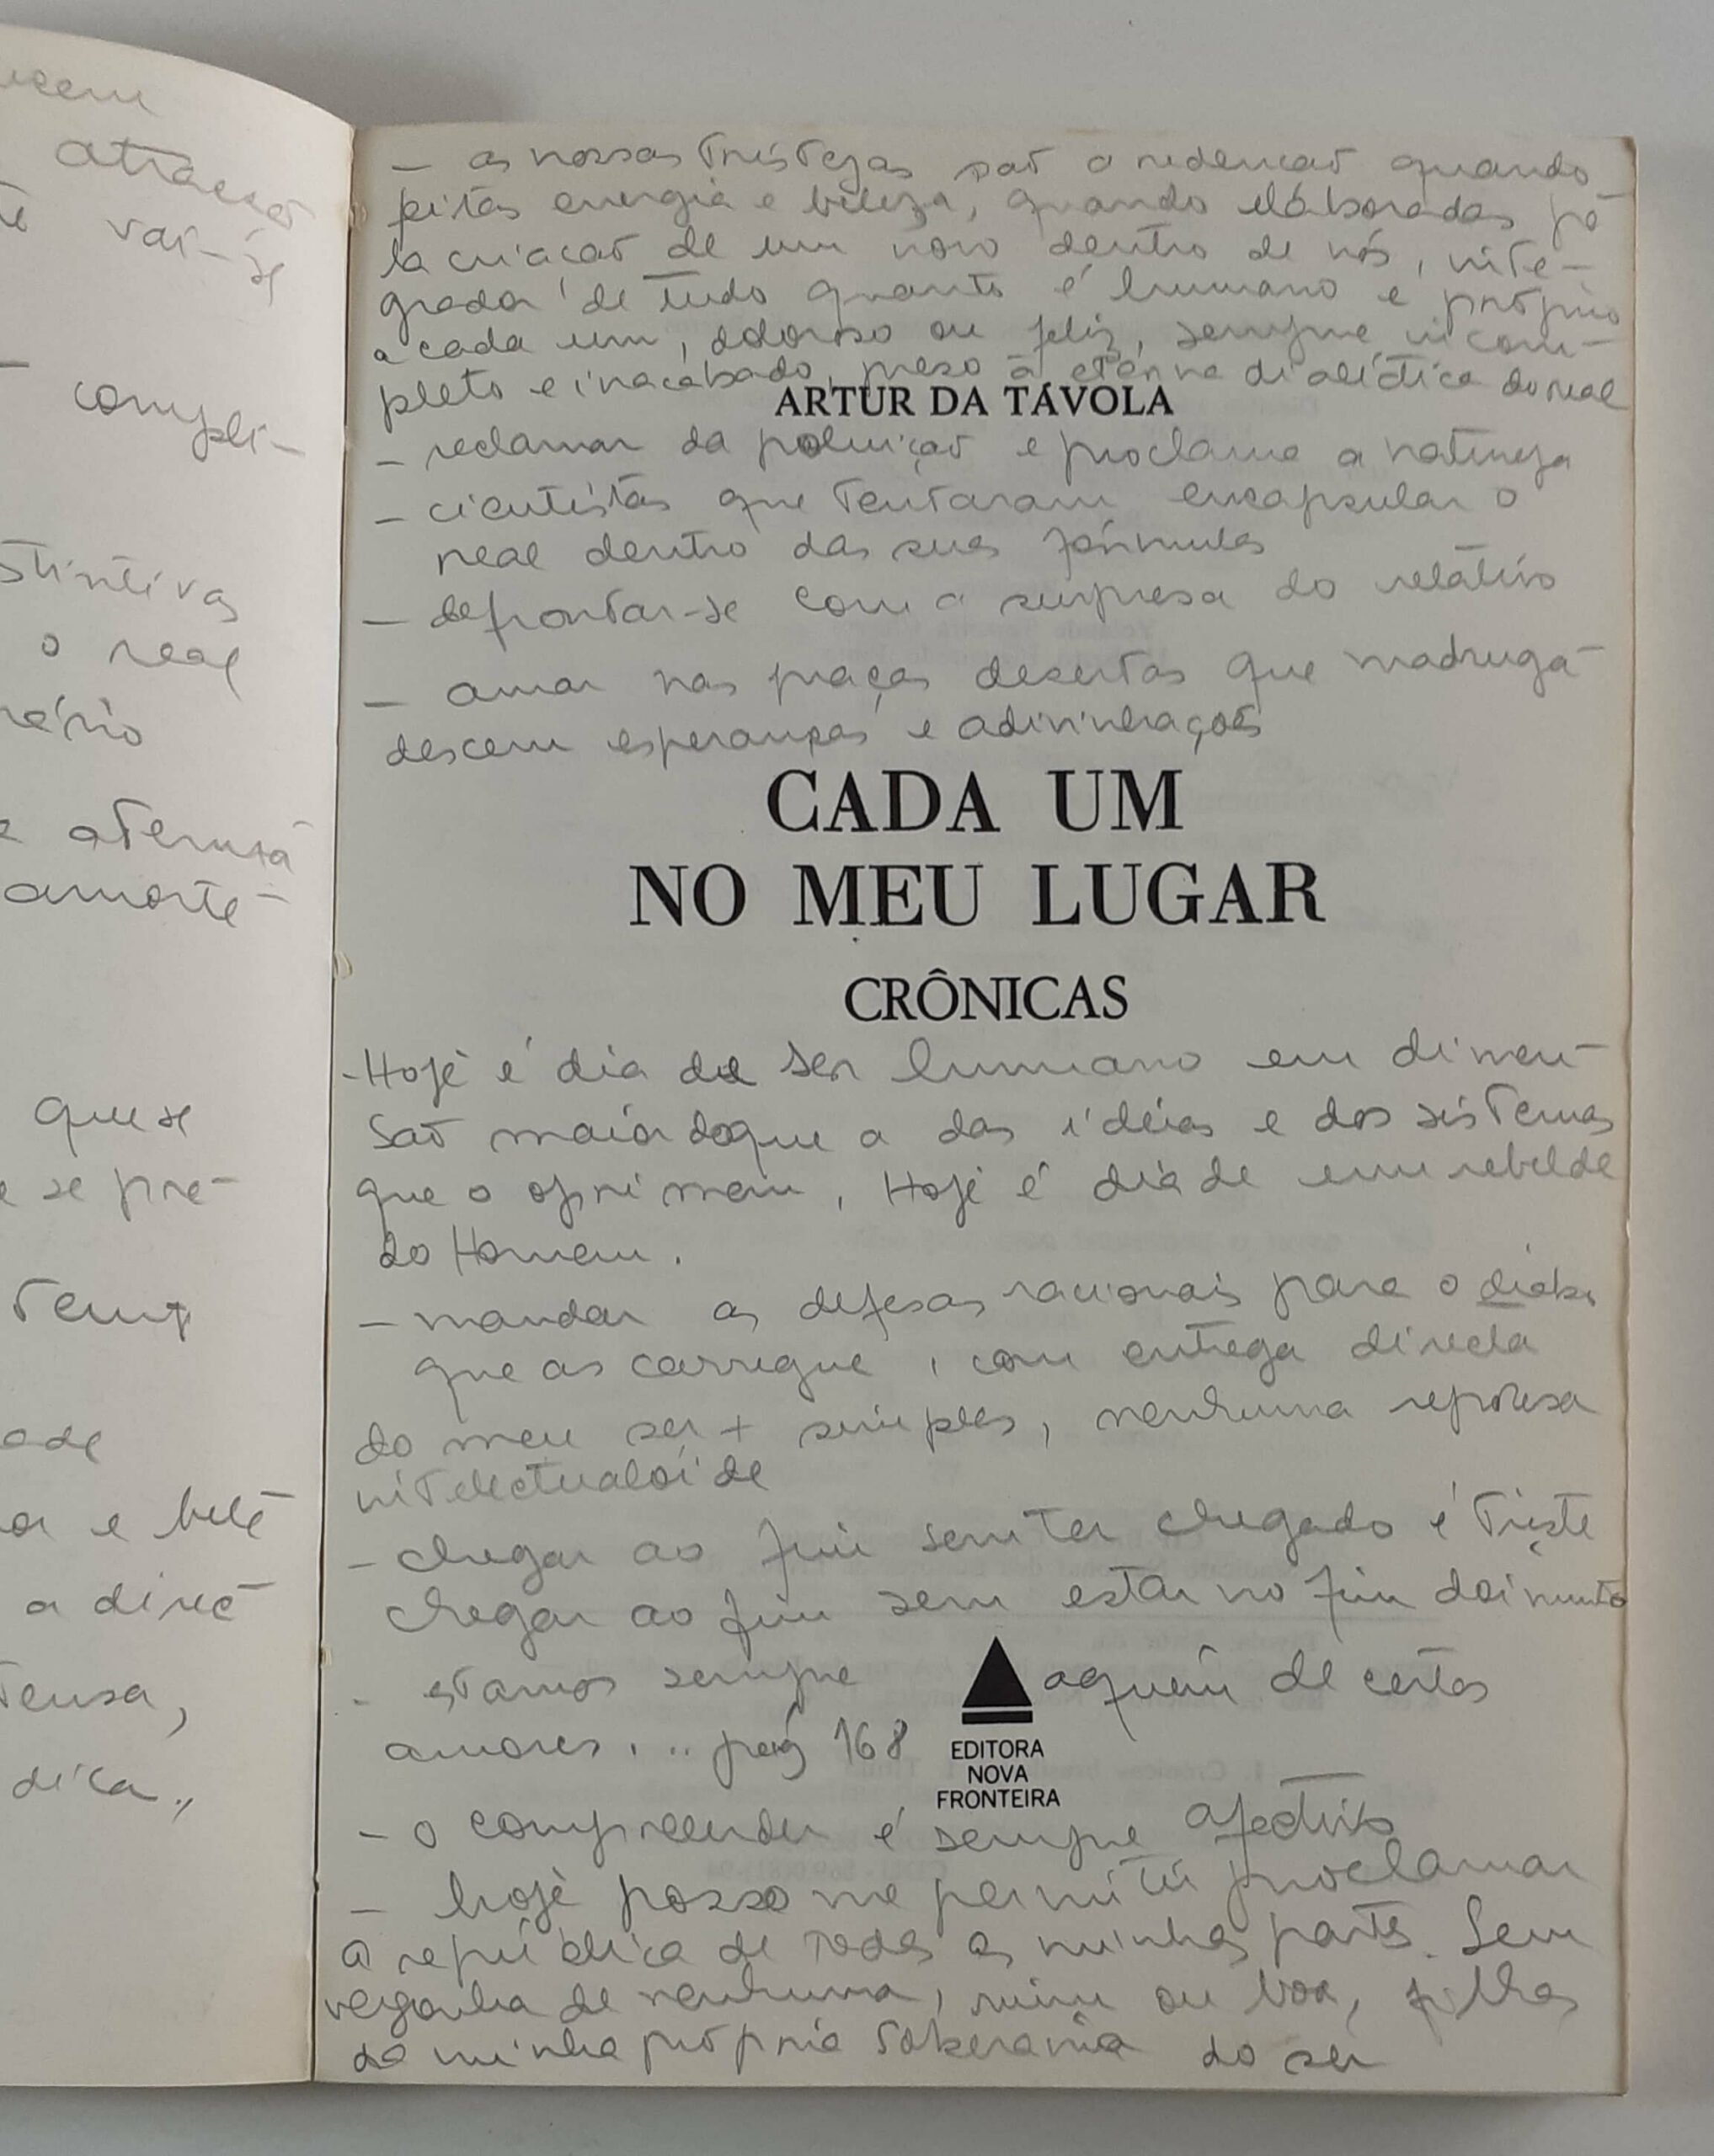 ucem
atração
vai-se
compli-
stintivas
o real
nério
e atenua
amorte-
que se
e se pre-
tent
ade
or e bele
a dire
tensa,
dica.,
- as nossas tristezas são a redenção quando
feitas energia e beleza, quando elaboradas pe
la criacão de um novo dentro de nós, inte-
grador de tudo quanto é humano e próprio
a cada um, doloroso ou feliz, sempre incom-
pleto e inacabado, preso à eterna dialética do real
ARTUR DA TÁVOLA
- reclamar da poluição e proclame a natureza
- cientistas que tentaram encapsular o
real dentro das suas fórmulas
- defrontar-se com a surpresa do relativo
- amar nas praças desertas que madruga
descem esperanças e adivinhações
CADA UM
NO MEU LUGAR
CRÔNICAS
- Hoje é dia de ser humano em dimen-
são maior do que a das idéias e dos sistemas
que o oprimem, Hoje é dia de
rebelde
do Homem.
- mandar as defesas racionais para o diabo
que as carregue, com entrega direta
do meu ser + simples, nenhuma represa
intelectualóide
- chegar ao fim sem ter chegado é triste
chegar ao fim sem estar no fim dói muito
- estamos sempre aquém de certos
amores... pág 168
EDITORA
NOVA
FRONTEIRA
- o compreender é sempre afetivo
- hoje posso me permitir proclamar
a república de todas as minhas partes. Sem
vergonha de nenhuma, ruim ou boa, filhas
da minha própria soberania do ser